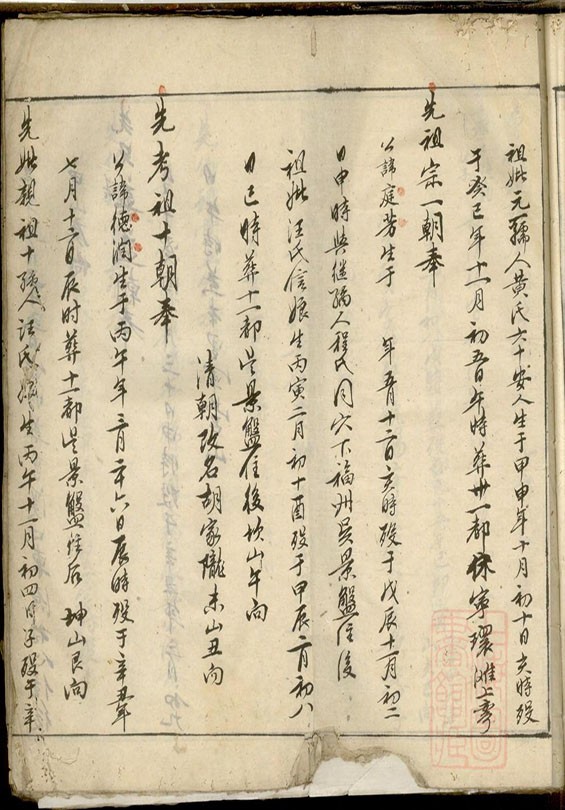 祖妣元一孺人黃氏六十安人生于甲申年十月初十日亥時殁
于癸巳年十二月初五日午時葬卅一都休寧環灘上寧
先祖宗一朝奉
公諱庭芳生于　年五月十二日亥時殁于戊辰十一月初二
日申時與继孺人程氏同穴下福州吴景盤住後
祖妣汪氏信娘生丙寅二月初十酉殁于甲辰二月初八
日巳時葬十一都吴景盤住後坎山午向
清朝改名胡家隴未山丑向
先考祖十朝奉
公諱德润生于丙午年三月二十六日辰時殁于辛丑年
七月十二日辰时葬十一都吴景盤住后　坤山艮向
先妣親祖十孺人汪氏 生丙午十一月初四日子殁于辛